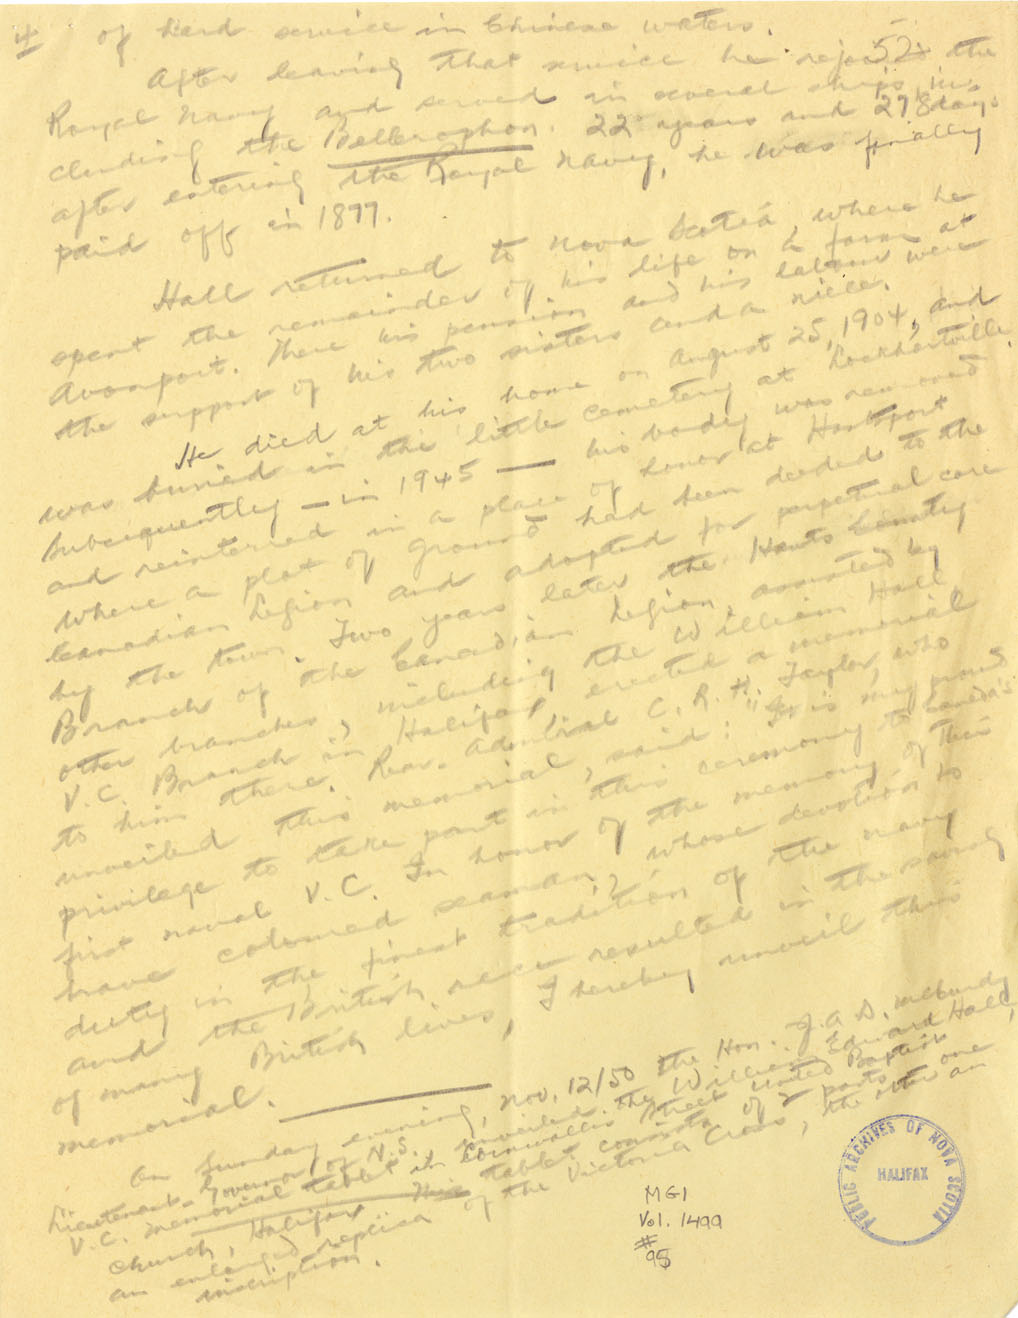 4 of hard service in Chinese waters.
52
After leaving that service he rejoined the
Royal Navy and served in several ships, in-
cluding the Bellerophon. 22 years and 278 days
after entering the Royal Navy, he was finally
paid off in 1877.
Hall returned to Nova Scotia, where he
spent the remainder of his life on a farm at
Avonport. There his pension and his labour were
the support of his two sisters and a niece.
He died at his home on August 25, 1904, and
was buried in the little cemetery at Lockhartville.
Subsequently — in 1945 — his body was removed
and reinterred in a place of honor at Hantsport
where a plot of ground had been deeded to the
Canadian Legion and adopted for perpetual care
by the town. Two years later the Hants County
Branch of the Canadian Legion, assisted by
other branches, including the William Hall
V.C. Branch in Halifax, erected a memorial
to him there. Rear-Admiral C. R. H. Taylor, who
unveiled this memorial, said: "It is my proud
privilege to take part in this ceremony to Canada's
first naval V.C. In honor of the memory of this
brave coloured seaman, whose devotion to
duty in the finest tradition of the navy
and the British race resulted in the saving
of many British lives, I hereby unveil this
memorial.
On Sunday evening, Nov. 12/50 the Hon. J. A. D. McCurdy
Lieutenant-Governor of N.S. unveiled the William Edward Hall,
V.C. memorial tablet in Cornwallis Street United Baptist
Church, Halifax. This tablet consists of 2 parts — one
an enlarged replica of the Victoria Cross, the other an
inscription.
MG1
Vol. 1499
#
95
PUBLIC ARCHIVES OF NOVA SCOTIA
HALIFAX